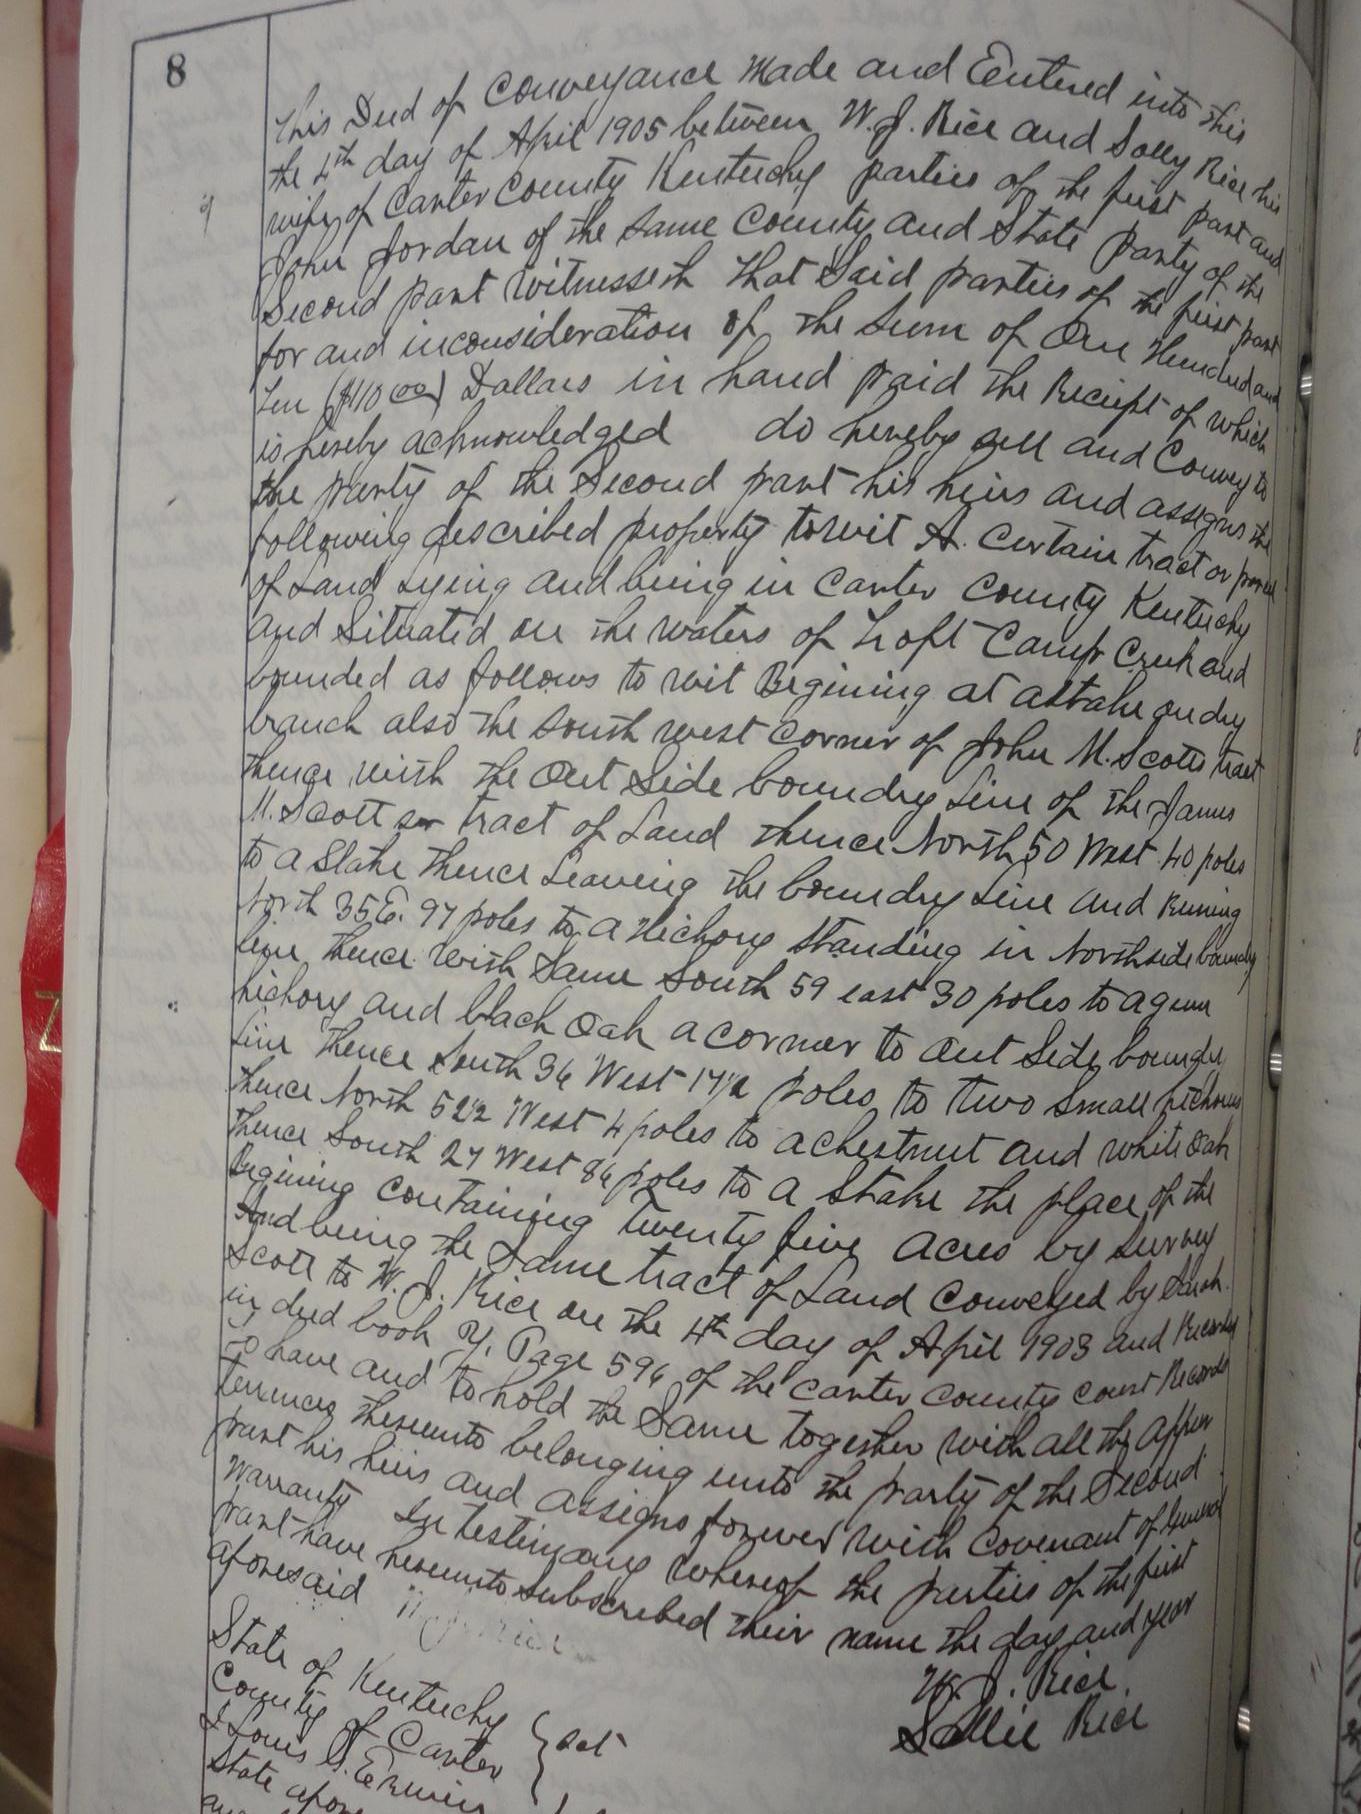 8
This Deed of Conveyance Made and Entered into this
the 4th day of April 1905 between W. J. Rice and Solly Rice his
wife of Carter County Kentucky parties of the first part and
John Jordan of the same County and State party of the
Second part Witnesseth that Said parties of the first part
for and inconsideration of the sum of One Hundred and
Ten ($110 00) Dollars in hand paid the Reciept of which
is hereby acknowledged do hereby sell and Convey to
the party of the Second part his heirs and assigns the
following described property towit A certain tract or parcel
of Land Lying and being in Carter County Kentucky
and Situated on the waters of Loft Camp Creek and
bounded as follows to wit Begining at astake on dry
branch also the south west corner of John M. Scotts tract
thence with the Out Side boundry Line of the James
M. Scott sr tract of Land thence North 50 West 40 poles
to a Stake thence Leaving the boundry Line and Runing
North 35 E. 97 poles to a Hickory standing in North side boundry
line thence with Same South 59 east 30 poles to a gum
hickory and black Oak a corner to out Side boundry
Line thence South 36 West 17 1/2 poles to two small hickories
thence North 52 1/2 West 4 poles to a chestnut and white Oak
thence South 27 West 86 poles to a Stake the place of the
Begining containing Twenty five acres by Survey
And being the Same tract of Land Conveyed by Sarah
Scott to W. J. Rice on the 4th day of April 1903 and Recorded
in deed book Y, Page 596 of the Carter County Court Records
To have and to hold the Same together with all the appur
tenances thereunto belonging unto the party of the Second
part his heirs and assigns forever with Covenant of General
Warranty In testimony whereof the parties of the first
part have hereunto subscribed their name the day and year
aforesaid
W. J. Rice
Sallie Rice
State of Kentucky
County of Carter } Sct
I Louis S. Erwin
State afore
Z